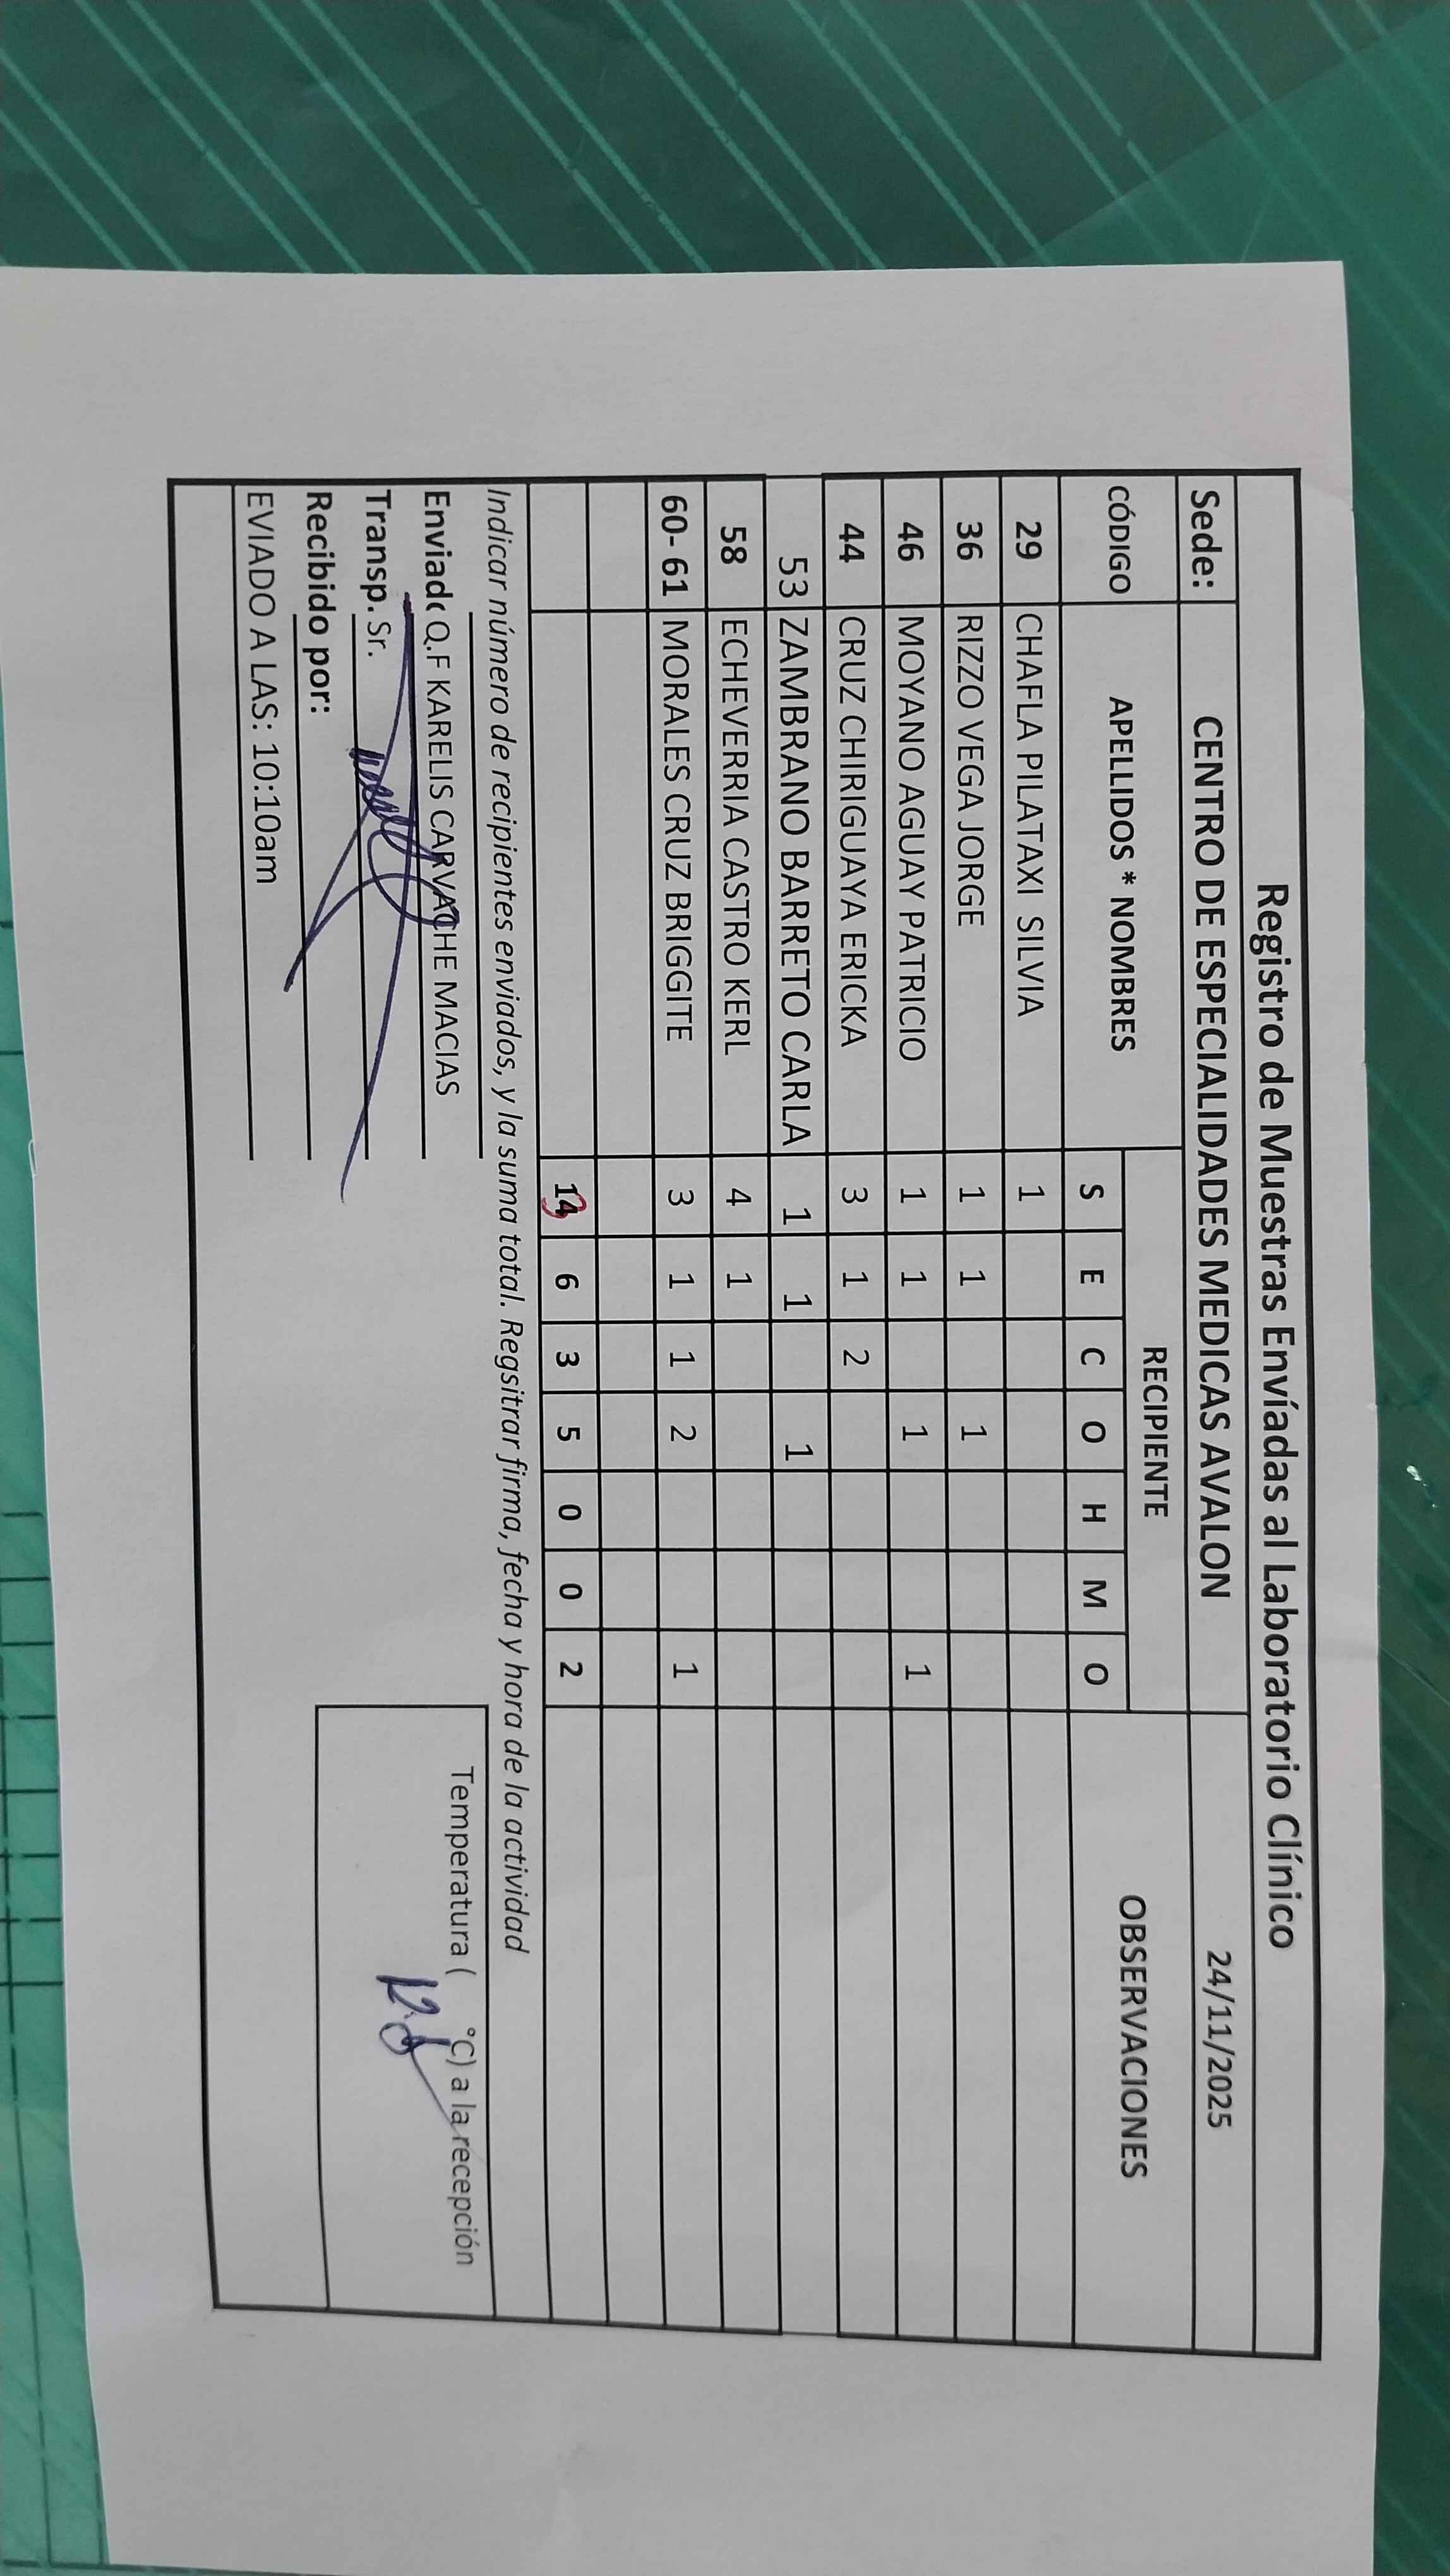 Registro de Muestras Envíadas al Laboratorio Clínico
Sede: CENTRO DE ESPECIALIDADES MEDICAS AVALON 24/11/2025
CÓDIGO APELLIDOS * NOMBRES RECIPIENTE OBSERVACIONES
S E C O H M O
29 CHAFLA PILATAXI SILVIA 1
36 RIZZO VEGA JORGE 1 1 1
46 MOYANO AGUAY PATRICIO 1 1 1 1
44 CRUZ CHIRIGUAYA ERICKA 3 1 2
53 ZAMBRANO BARRETO CARLA 1 1 1
58 ECHEVERRIA CASTRO KERL 4 1
60- 61 MORALES CRUZ BRIGGITE 3 1 1 2 1
14 6 3 5 0 0 2
Indicar número de recipientes enviados, y la suma total. Regsitrar firma, fecha y hora de la actividad
Enviado Q.F KARELIS CARVACHE MACIAS
Temperatura ( °C) a la recepción
Transp. Sr.
Recibido por:
EVIADO A LAS: 10:10am